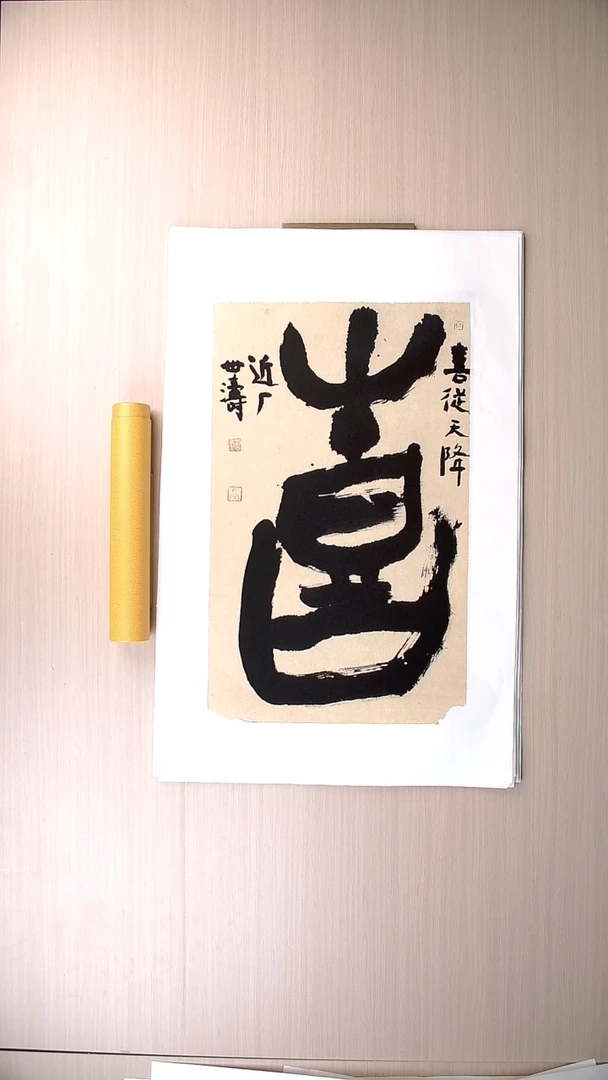 喜從天降
喜
近厂
世濤